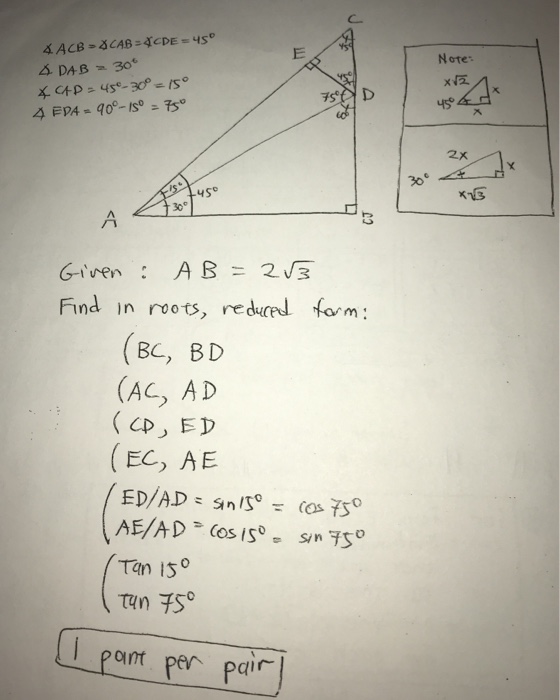 ∡ ACB = ∡CAB = ∡CDE = 45°
∡ DAB = 30°
∡ CAD = 45° - 30° = 15°
∡ EDA = 90° - 15° = 75°
C
45°
E
45°
75°
D
60°
15°
45°
30°
A
B
Note:
x√2
x
45°
x
2x
x
30°
x√3
Given : AB = 2√3
Find in roots, reduced form:
(BC, BD
(AC, AD
(CD, ED
(EC, AE
(ED/AD = sin 15° = cos 75°
AE/AD = cos 15° = sin 75°
(Tan 15°
Tan 75°
1 point per pair